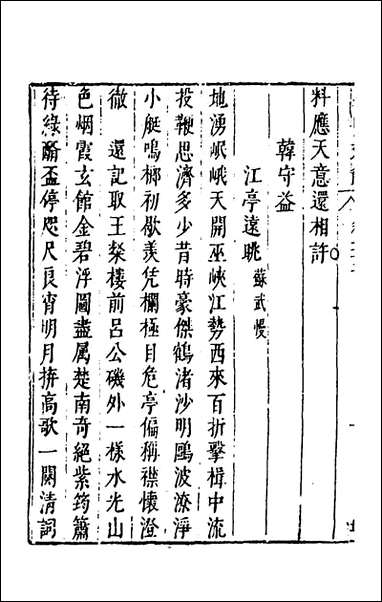 料應天意還相許
韓守益
江亭遠眺 蘇武慢
地湧岷峨天開巫峽江勢西來百折擊楫中流
投鞭思濟多少昔時豪傑鶴渚沙明鷗波潦淨
小艇鳴榔初歇羡凭欄極目危亭偏稱襟懷澄
徹　還記取王粲樓前呂公磯外一樣水光山
色烟霞玄館金碧浮圖盡属楚南奇絕紫筠簫
待綠醑盃停咫尺良宵明月拚高歌一闋清詞